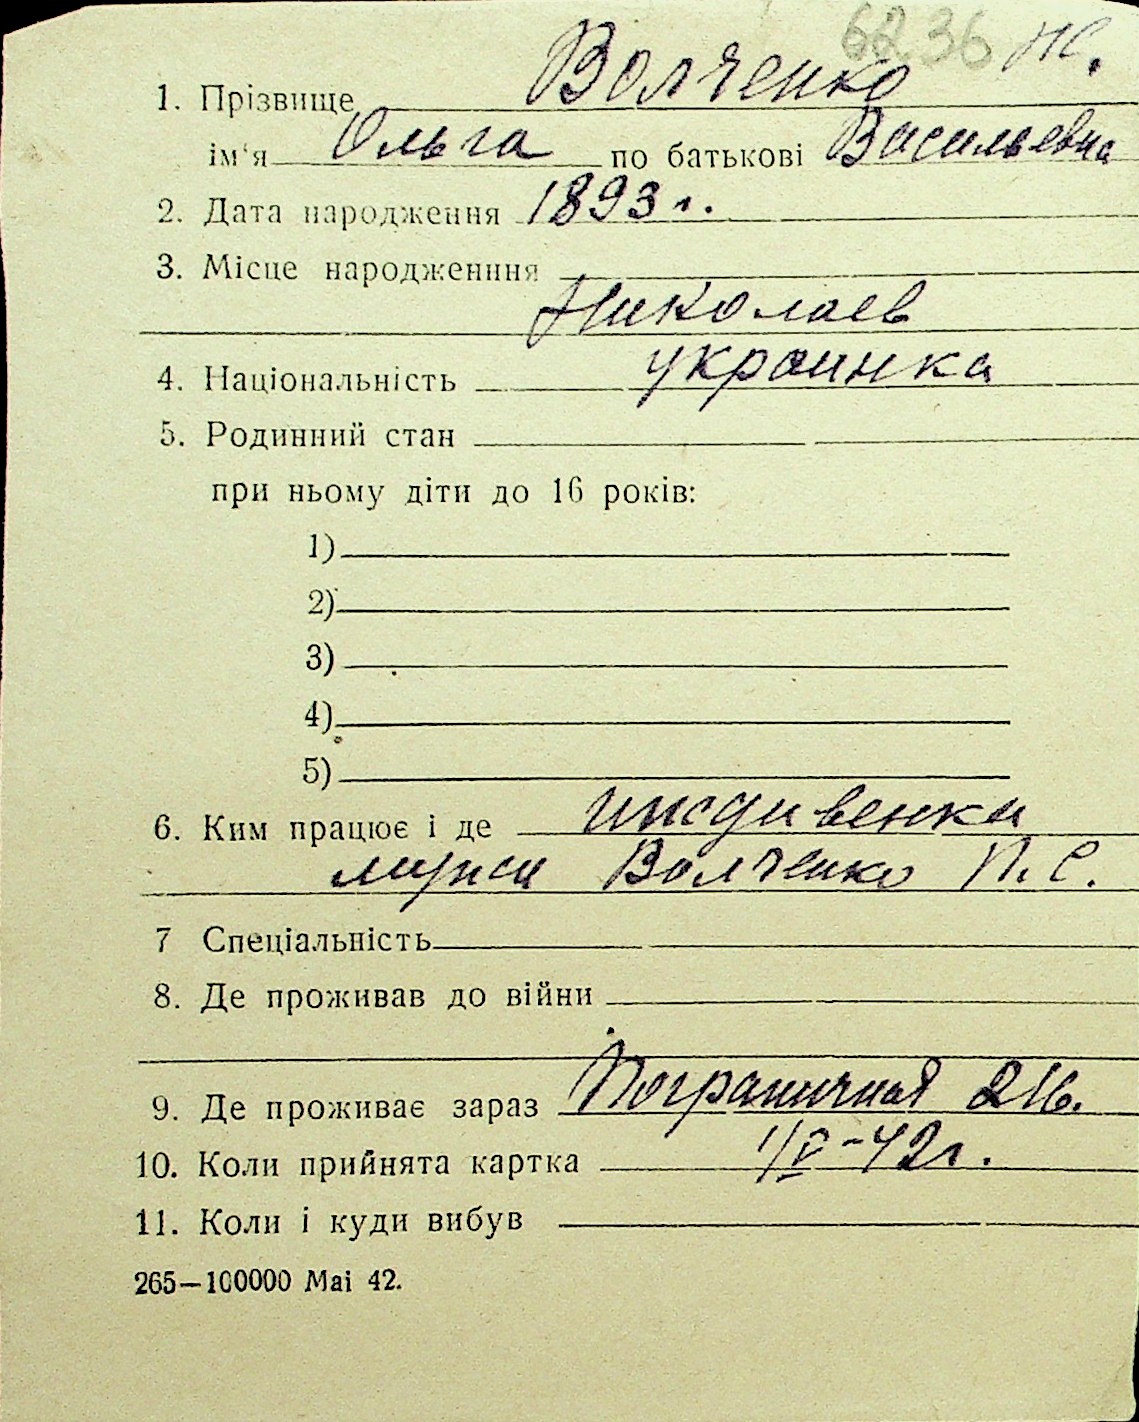 6236 Ж.
1. Прізвище Волченко
ім‘я Ольга по батькові Васильевна
2. Дата народження 1893 г.
3. Місце народженння
Николаев
4. Національність украинка
5. Родинний стан
при ньому діти до 16 років:
1)
2)
3)
4)
5)
6. Ким працює і де иждивенка
мужа Волченко П. С.
7 Спеціальність
8. Де проживав до війни
9. Де проживає зараз Пограничная
10. Коли прийнята картка 1/V-42г.
11. Коли і куди вибув
265—100000 Mai 42.